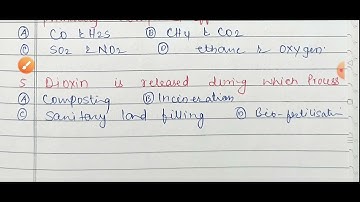 Ⓐ CO & H2S Ⓑ CH4 & CO2
Ⓒ SO2 & NO2 Ⓓ ethane & oxygen.
5 Dioxin is released during which Process
Ⓐ Composting Ⓑ Incineration
Ⓒ Sanitary land filling Ⓓ Bio-fertilisation